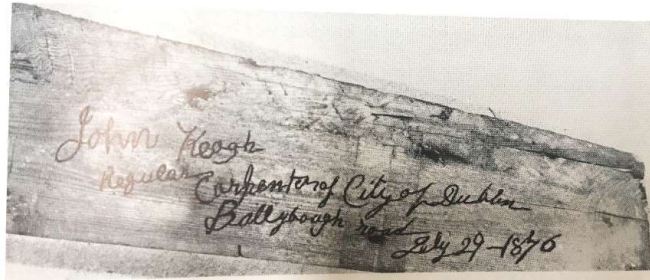 John Keogh
Regular Carpenter of City of Dublin
Ballybough road
July 29-1876